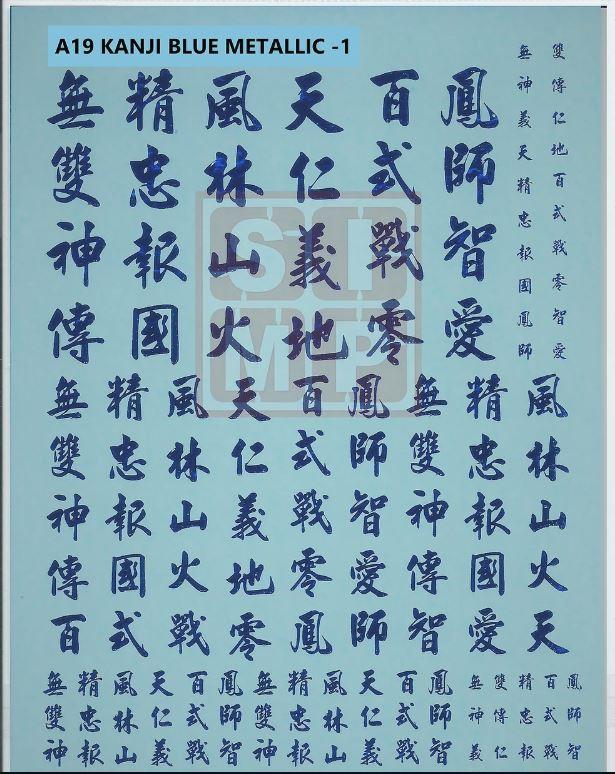 A19 KANJI BLUE METALLIC -1
無精風天百鳳
雙忠林仁式師
神報山義戰智
傳國火地零愛
無神義天精忠報國鳳師
雙傳仁地百式戰零智愛
SIMP
無精風天百鳳無精風
雙忠林仁式師雙忠林
神報山義戰智神報山
傳國火地零愛傳國火
百式戰零鳳師智愛天
無精風天百鳳無精風天百鳳
雙忠林仁式師雙忠林仁式師
神報山義戰智神報山義戰智
無雙精百鳳
神傳忠式師
義仁報戰智